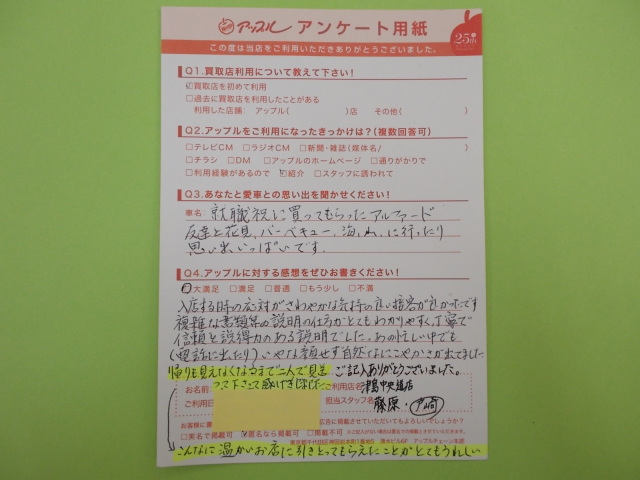 アップル アンケート用紙
25th
この度は当店をご利用いただきありがとうございました。
Q1.買取店利用について教えて下さい！
☑買取店を初めて利用
□過去に買取店を利用したことがある
利用した店舗： アップル（ ）店 その他（ ）
Q2.アップルをご利用になったきっかけは？（複数回答可）
□テレビCM □ラジオCM □新聞・雑誌（媒体名/ ）
□チラシ □DM □アップルのホームページ □通りがかりで
□利用経験があるので ☑紹介 □スタッフに誘われて
Q3.あなたと愛車との思い出を聞かせください！
車名： 就職祝に買ってもらったアルファード
友達と花見、バーベキュー、海、山、に行ったり
思い出いっぱいです。
Q4.アップルに対する感想をぜひお書きください！
☑大満足 □満足 □普通 □もう少し □不満
入店する時の応対がさわやかな気持の良い接客が良かったです
複雑な書類等の説明の仕方がとてもわかりやすく、丁寧で
信頼と説得力のある説明でした。あの忙しい中でも
（電話に出たり）いやな顔せず自然なにこやかさが出てました
帰りも見えなくなるまで二人で見送 ご記入ありがとうございました。
って下さって感げき
お名前 ご利用店名 津島中央道店
ご利用日 担当スタッフ名 藤原・戸崎
お客様に書 広告に掲載いただいてもよろしいでしょうか？
□実名で掲載可 ☑匿名なら掲載可 □掲載不可
アップルチェーン本部
こんなに温かいお店に引きとってもらえたことがとてもうれしい